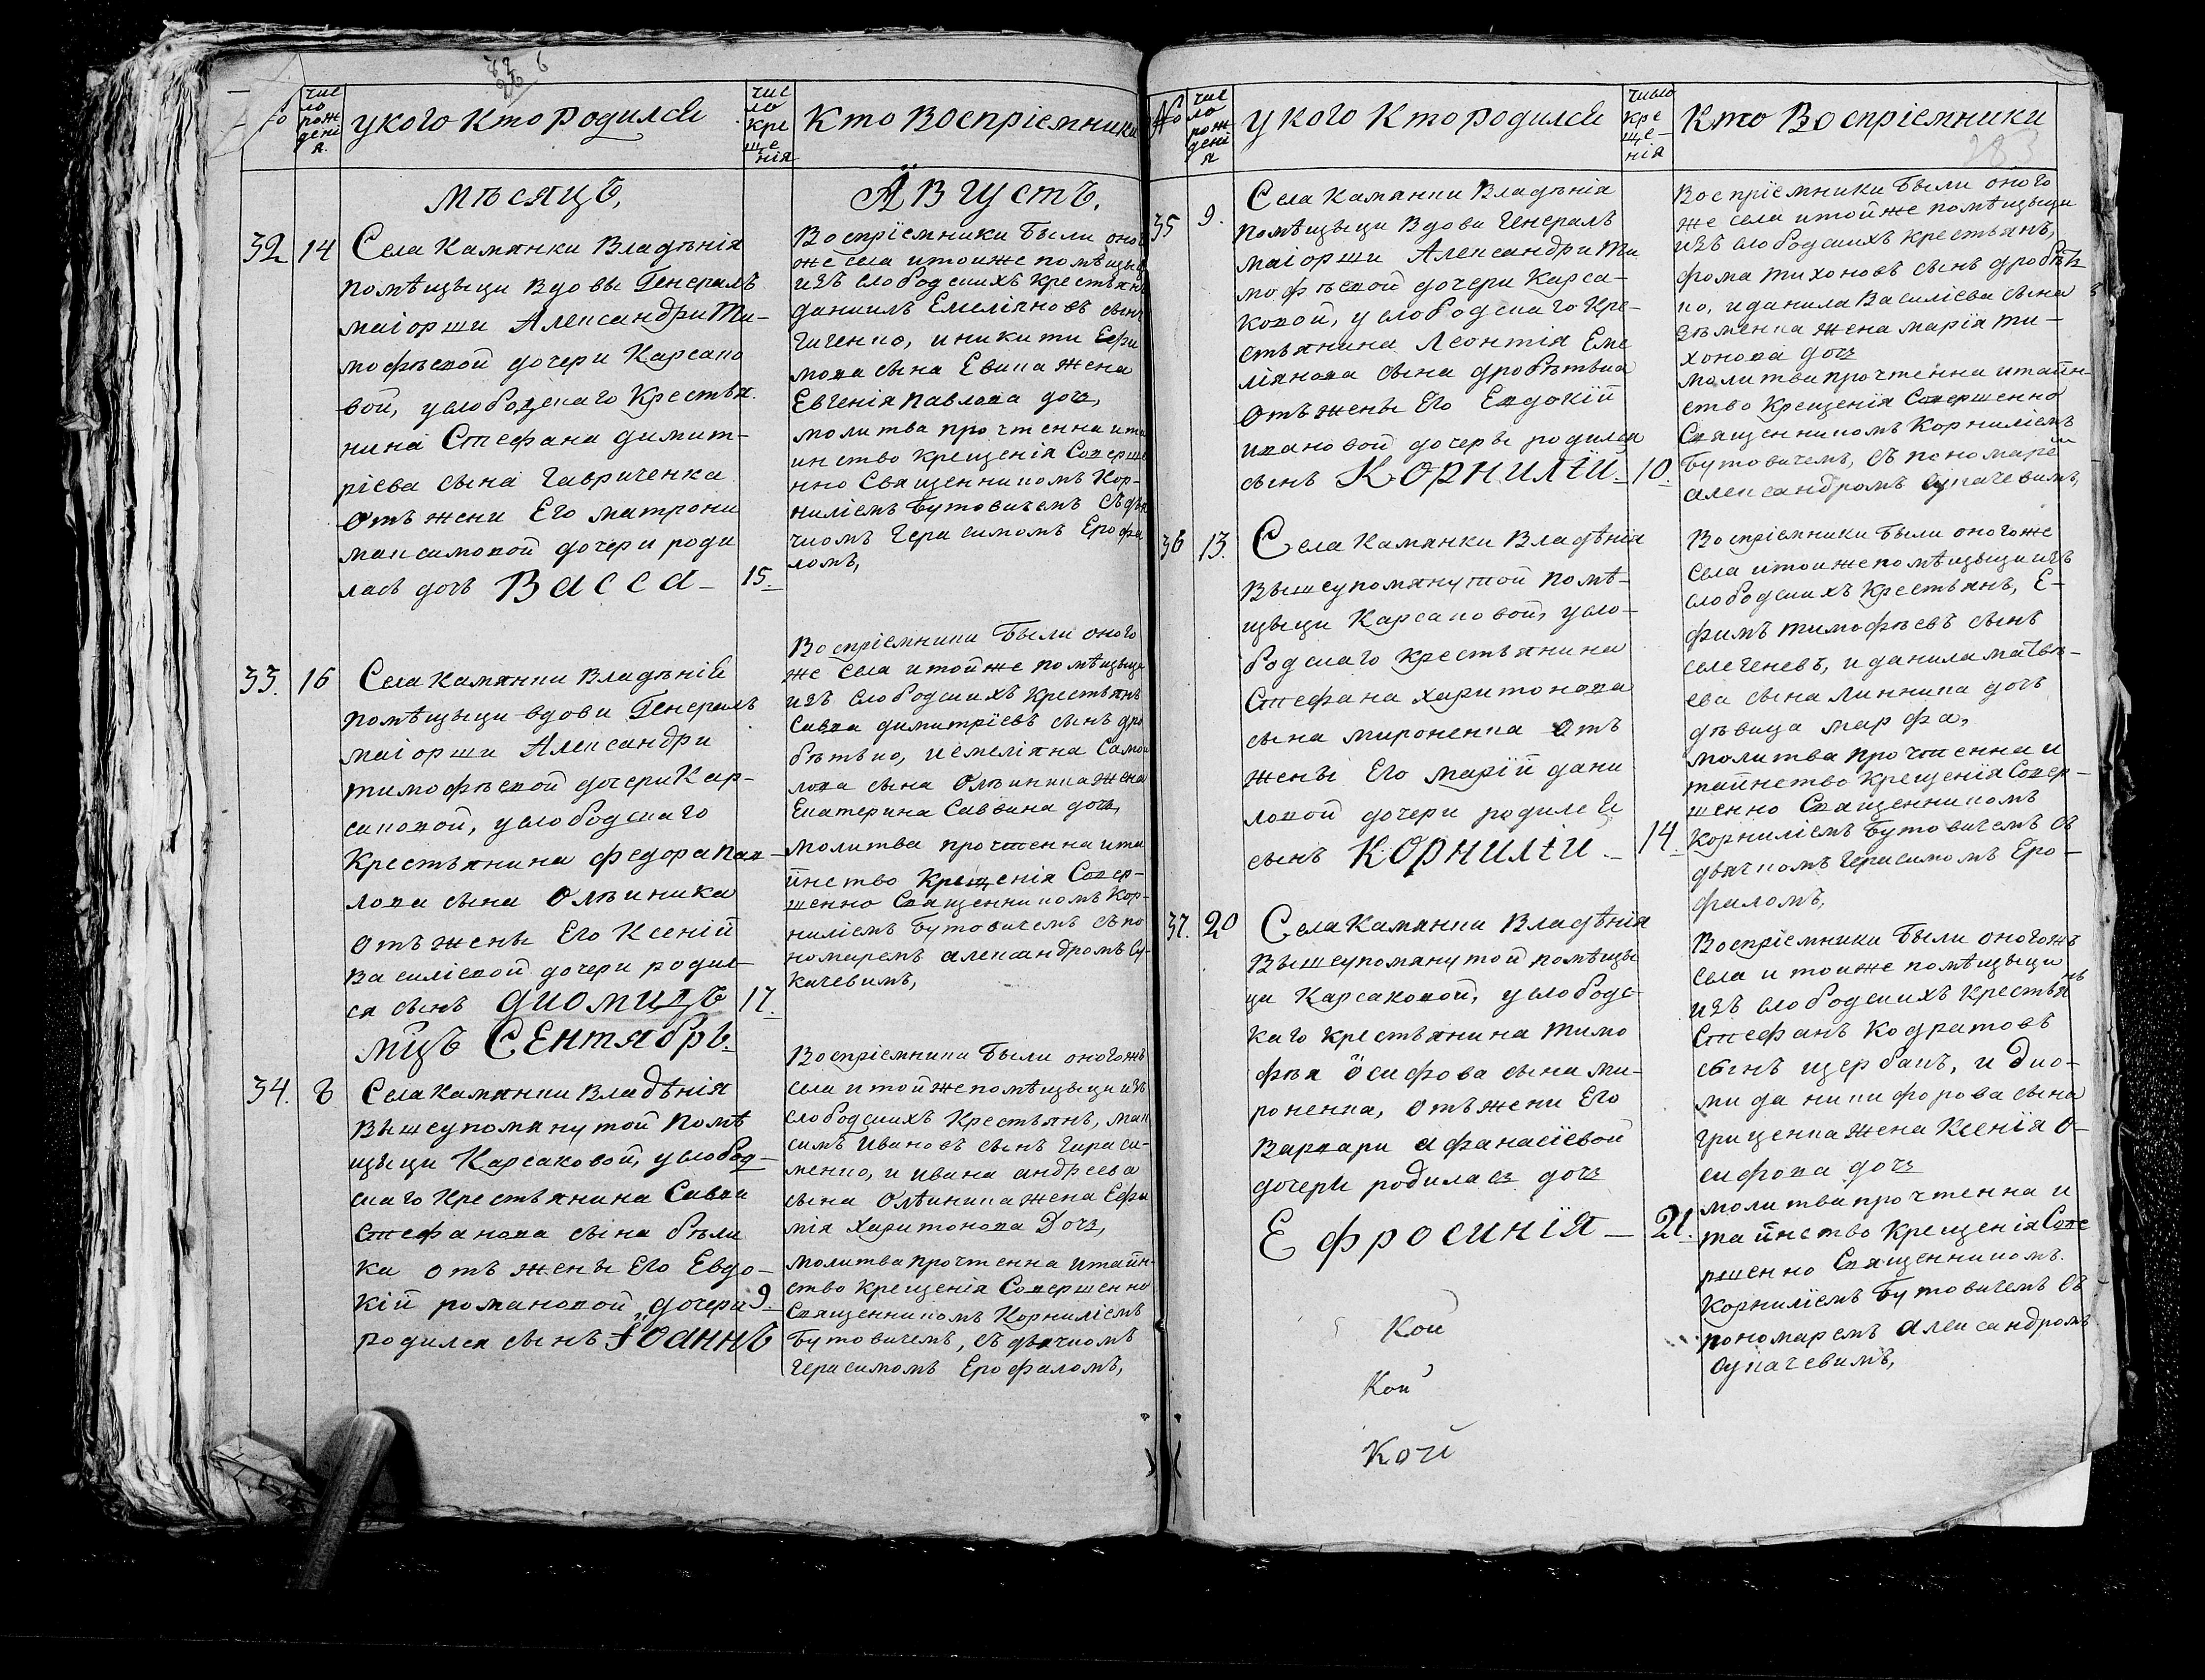 №
чис
ло
рож
дені
я.
укого кто родился
чис
ло
кре
ще
нія
Кто Воспріемники
мѣсяцъ,
Августъ.
32
14
Села Камянки Владѣнія
помѣщыци вдовы Генералъ
маіорши Александри Ти-
мофѣевой дочери Карсако
вой, услободскаго Крестья
нина Стефана димит-
ріева сына гавриченка
отъ жени Его матрони
максимовой дочери роди
лась дочь Васса
15
Воспріемники были оного
же села итоиже помѣщыци
изъ слободскихъ крестьянъ
даниилъ Емеліяновъ сынъ
гиченко, иникити Ефи
мова сына Евипа жена
Евгенія Павлова дочь,
молитва прочтенна ита
инство крещенія Соверше
нно Священникомъ Кор-
ниліемъ Бутовичемъ Съдья
чкомъ Герасимомъ Ерофа
ломъ,
33.
16
Села Камянки Владѣнія
помѣщыци вдови Генералъ
маіорши Александри
тимофѣевой дочери Кар-
саковой, услободскаго
Крестьянина федора Пав-
лова сына Олѣиника
отъ жены Его Ксеній
Василіевой дочери родил
ся сынъ диомидъ
17.
Воспріемники были оного
же села итойже помѣщыци
изъ слободскихъ крестьянъ
Савва димитріевъ сынъ дро
бѣтько, иемеліяна Самои
лова сына Олѣиника жена
Екатерина Саввина дочь,
молитва прочтенна ита
инство крещенія Совер-
шенно Священникомъ Кор-
ниліемъ Бутовичемъ съпо
номаремъ александромъ Су-
качевимъ,
мцъ Сентябрь
34.
8
Села Камянки Владѣнія
вышеупомянутой помѣ
щыци Карсаковой, услобод-
скаго крестьянина Савви
стефанова сына бѣли
ка отъ жены Его Евдо-
кій романовой дочери
родился сынъ Іоаннъ
9
Воспріемники были оногожъ
села итойже помѣщыци изъ
слободскихъ крестьянъ, мак
симъ Ивановъ сынъ гираси-
менко, и ивана андреева
сына Олѣиника жена Ефи
мія харитонова Дочь,
молитва прочтенна итайн-
ство крещенія Совершенно
Священникомъ Корниліемъ
Бутовичемъ, съ дьячкомъ
герасимомъ Ерофаломъ,
№
чис
ло
рож
дені
я
укого Кто родился
число
кре
ще-
нія
Кто Воспріемники
283
35
9.
Села Камянки Владѣнія
помѣщыци Вдови Генералъ
маіорши Александри Ти
мофѣевой дочери Карса-
ковой, услободскаго Кре-
стьянина Леонтія Еме
ліянова сына дробѣтька
отъ жены Его Евдокій
ивановой дочеры родился
сынъ Корнилій
10.
Воспріемники были оного
же села итойже помѣщыци
изъ слободскихъ крестьянъ,
фома тихоновъ сынъ дробѣть
ко, иданила Василіева сына
жена марія ти-
хонова дочь
молитва прочтенна итаин-
ство Крещенія Совершенно
Священникомъ Корниліемъ
Бутовичемъ, съ пономарем
александромъ сукачевимъ,
36
13.
Села Камянки Владѣнія
Вышеупомянутой помѣ-
щыци Карсаковой, усло-
бодскаго крестьянина
Стефана харитонова
сына мироненка отъ
жены Его марій дани
ловой дочери родился
сынъ Корнилій
14.
Воспріемники были оногоже
села итоиже помѣщыци изъ
слободскихъ крестьянъ, Е-
фимъ тимофѣевъ сынъ
селегеневъ, и данила матвѣ-
ева сына линника дочь
дѣвица марфа,
молитва прочтенна и
таинство крещенія Совер-
шенно Священникомъ
Корниліемъ Бутовичемъ съ
дьячкомъ герасимомъ Еро-
фаломъ,
37.
20
Села Камянки Владѣнія
Вышеупомянутой помѣщы
ци Карсаковой, услободс-
каго крестьянина тимо
фѣя осифова сына ми-
роненка, отъ жени Его
Варвари афанасіевой
дочеры родилась дочь
Ефросинія
21.
Воспріемники были оногожъ
села и тоиже помѣщыци
изъ слободскихъ крестьянъ
Стефанъ Кодратовъ
сынъ щербакъ, и дио-
мида никифорова сына
грищенка жена Ксенія о-
сифова дочь
молитва прочтенна и
таинство крещенія Сове
ршенно Священникомъ
Корниліемъ Бутовичемъ съ
пономаремъ александромъ
сукачевимъ,
Кой
Кой
Кой